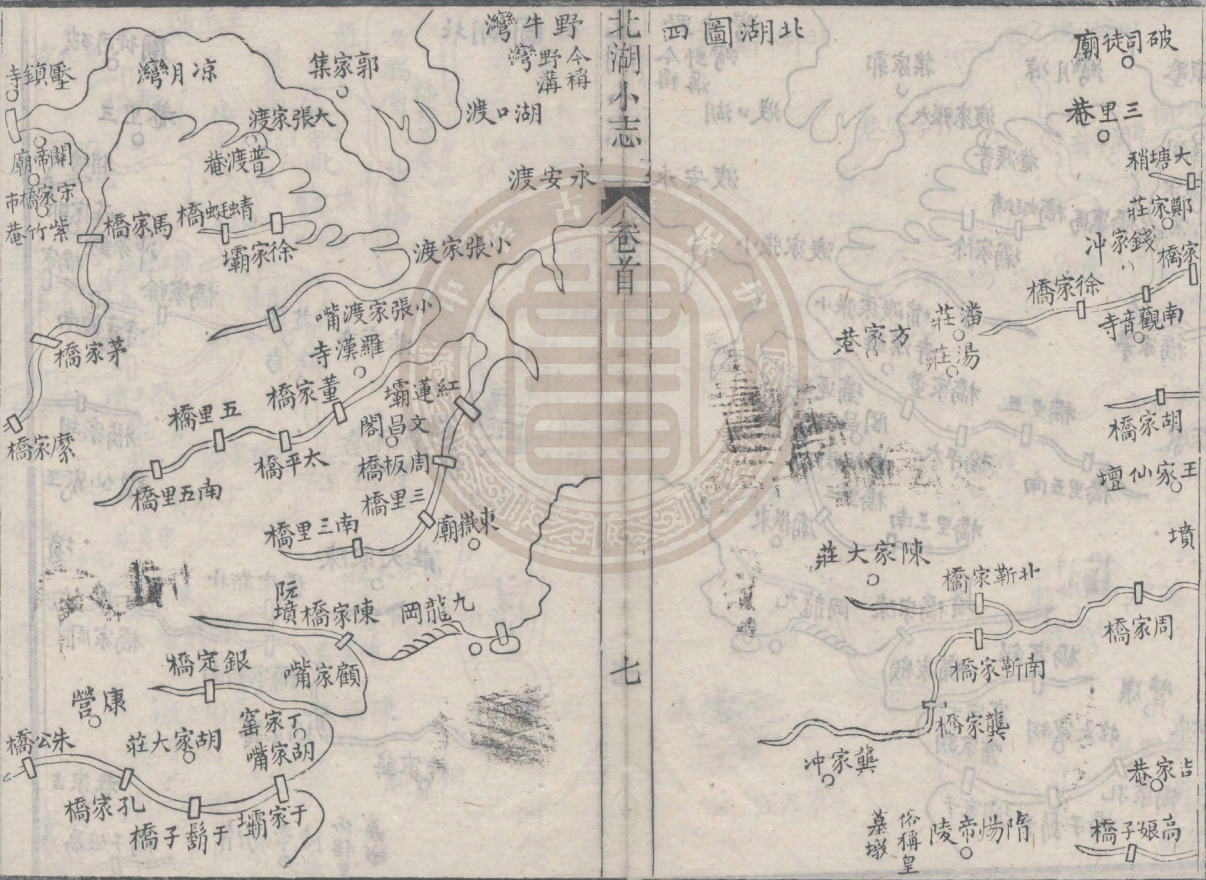 北湖圖四
破司徒廟
三里菴
大塘稍
鄭家莊
錢家冲
家橋
徐家橋
南觀音寺
潘莊
湯莊
方家巷
胡家橋
王家仙壇
墳
陳家大莊
北靳家橋
周家橋
南靳家橋
龔家橋
龔家冲
吉家菴
隋煬帝陵
俗稱皇墓墩
高娘子橋
北湖小志
卷首
七
野牛灣
今稱野灣溝
湖口渡
永安渡
郭家集
凉月灣
壓鎮寺
大張家渡
普渡菴
關帝廟
宋家橋市
紫竹菴
馬家橋
蜻蜓橋
徐家壩
小張家渡
小張家渡嘴
羅漢寺
茅家橋
董家橋
紅蓮壩
文昌閣
五里橋
太平橋
周板橋
南五里橋
三里橋
南三里橋
東嶽廟
阮墳
陳家橋
九龍岡
銀定橋
顧家嘴
康營
丁家窑
胡家嘴
胡家大莊
朱公橋
孔家橋
于鬍子橋
于家壩